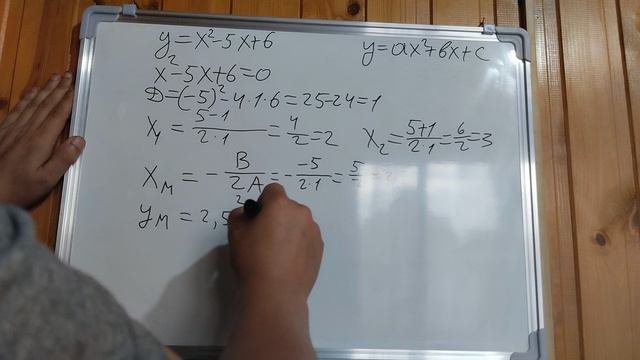 y=x²-5x+6
y=ax²+bx+c
x²-5x+6=0
D=(-5)²-4·1·6=25-24=1
x₁=(5-1)/(2·1)=4/2=2
x₂=(5+1)/(2·1)=6/2=3
xₘ=-B/(2A)=-(-5)/(2·1)=5/
yₘ=2,5²